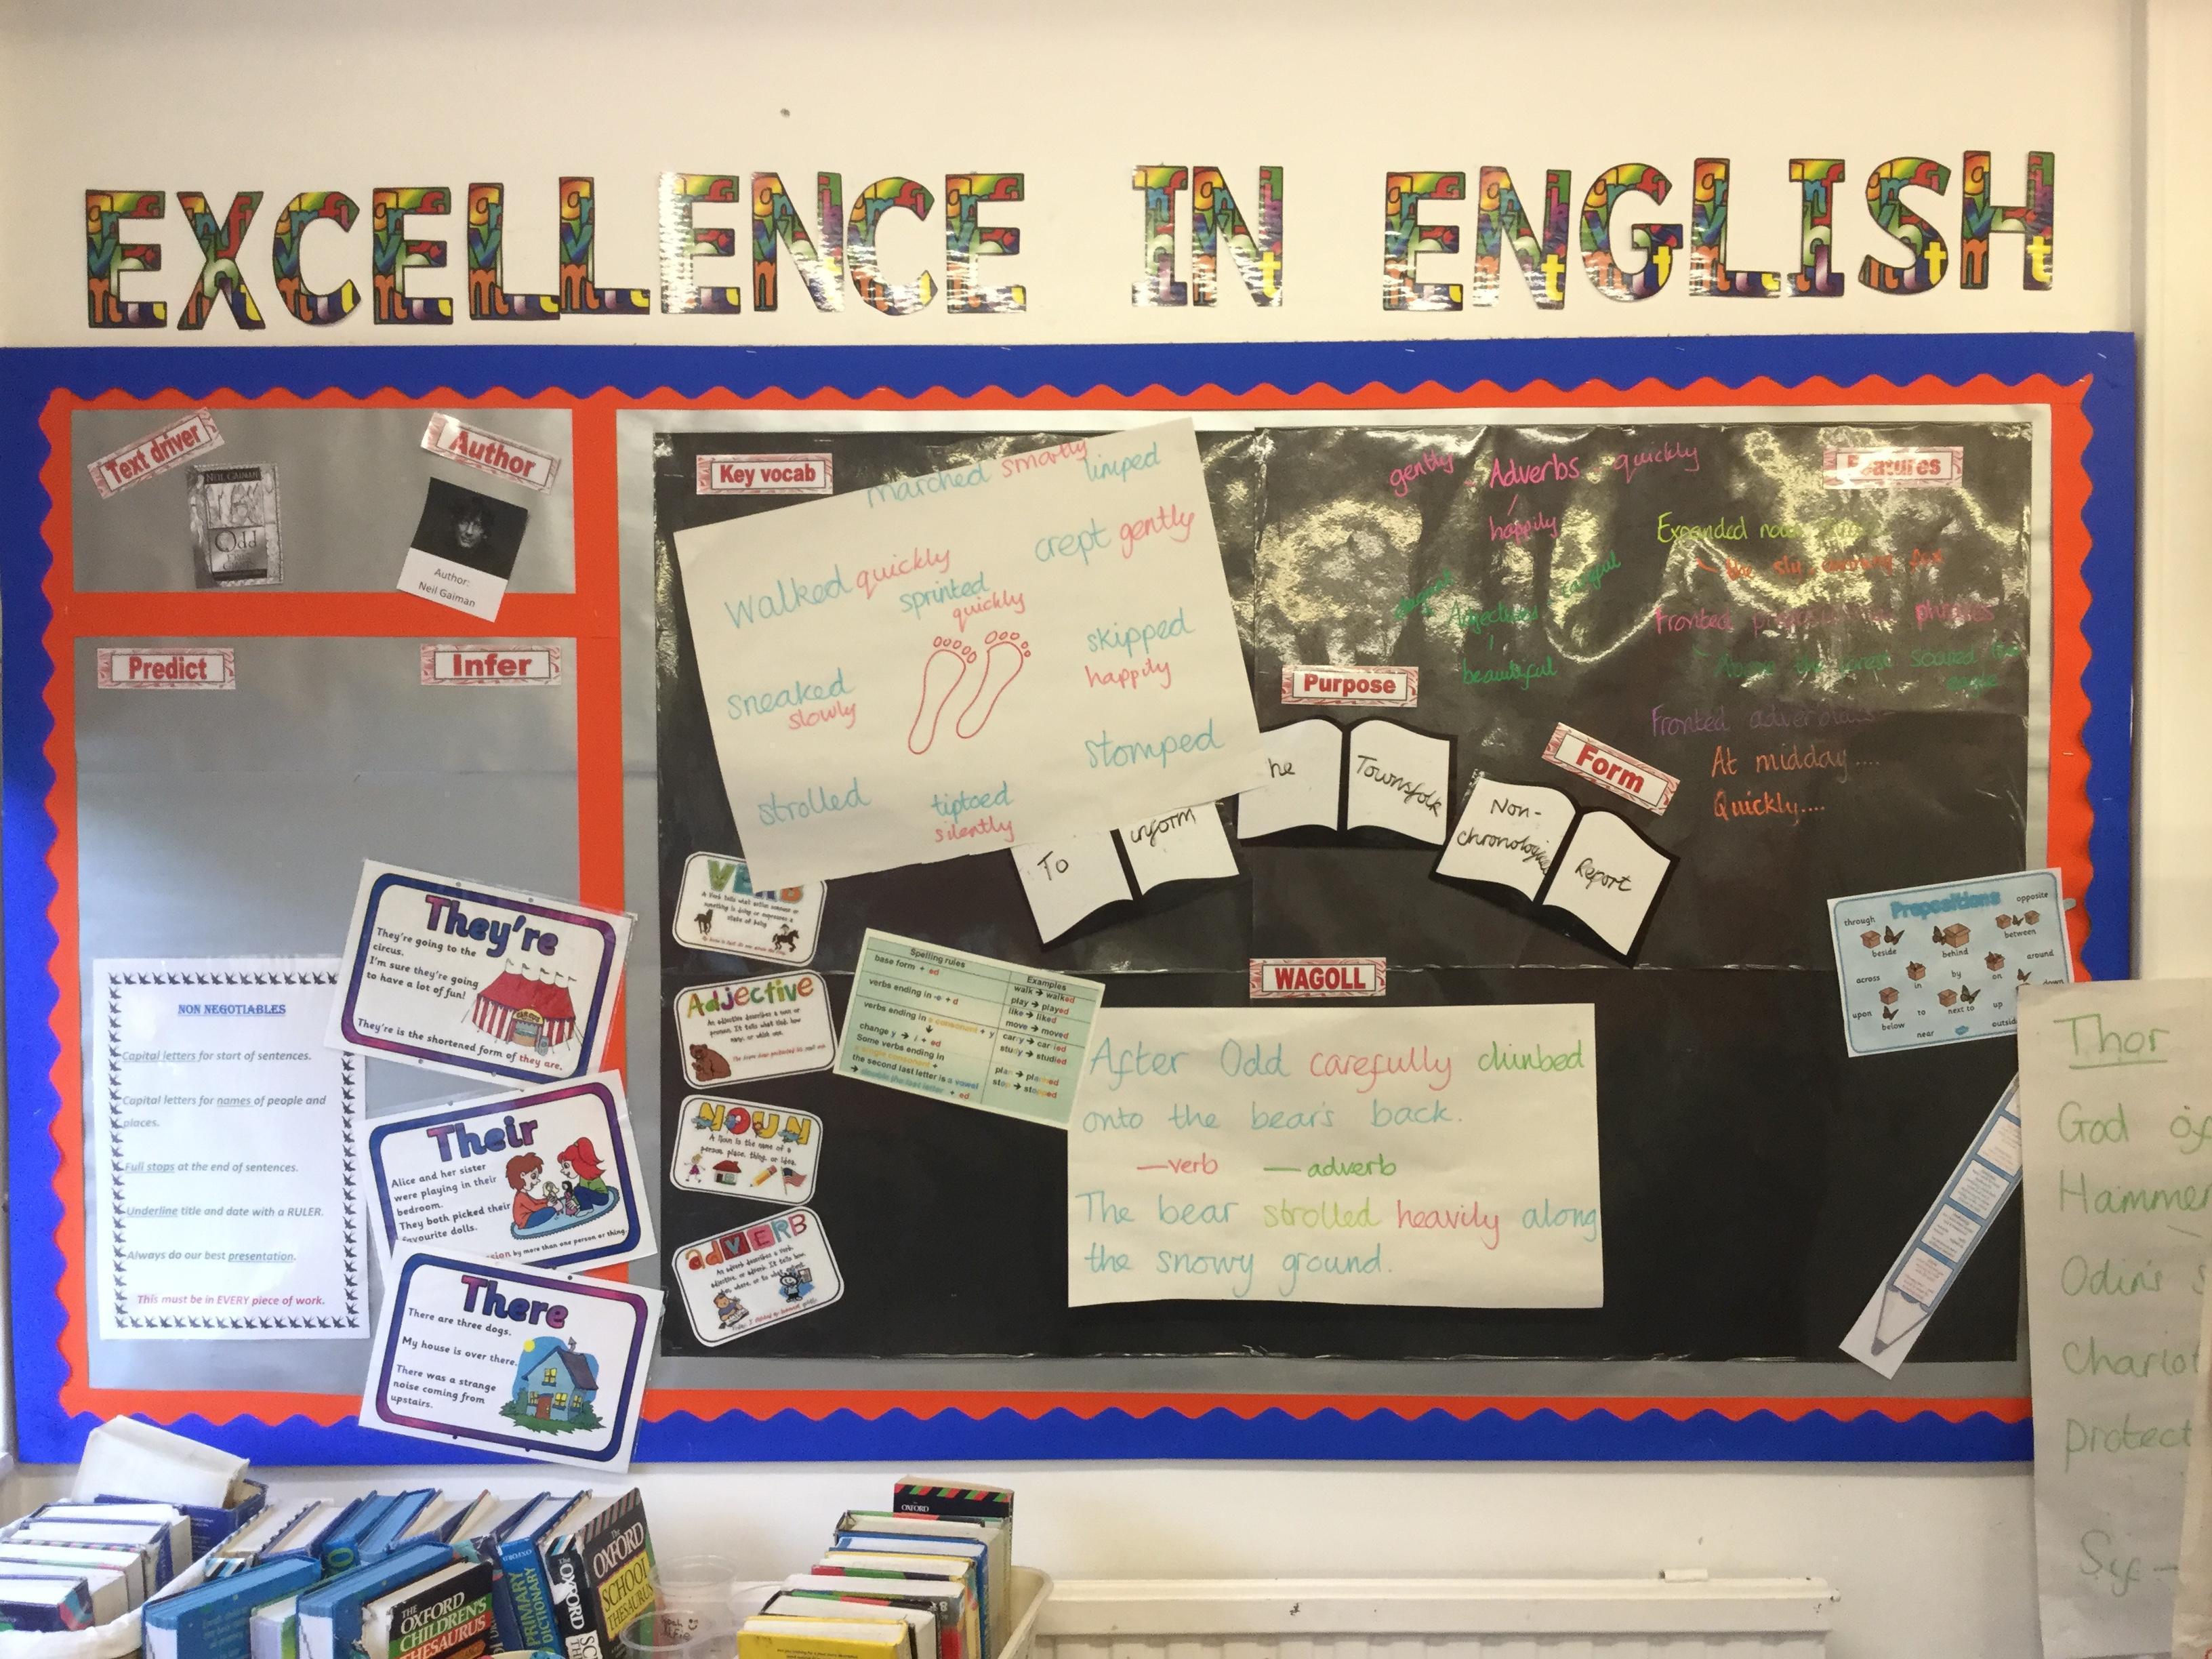 EXCELLENCE IN ENGLISH
Text driver
NEIL GAIMAN
Odd
Author
Author:
Neil Gaiman
Predict
Infer
NON NEGOTIABLES
Capital letters for start of sentences.
Capital letters for names of people and
places.
Full stops at the end of sentences.
Underline title and date with a RULER.
Always do our best presentation.
This must be in EVERY piece of work.
They're
They're going to the
circus.
I'm sure they're going
to have a lot of fun!
They're is the shortened form of they are.
Their
Alice and her sister
were playing in their
bedroom.
They both picked their
favourite dolls.
by more than one person or thing.
There
There are three dogs.
My house is over there.
There was a strange
noise coming from
upstairs.
Key vocab
marched smartly
limped
crept gently
walked quickly
sprinted
quickly
skipped
happily
sneaked
slowly
stomped
strolled
tiptoed
silently
VERB
Adjective
NOUN
A Noun is the name of a
person, place, thing, or idea.
adverb
Spelling rules
Examples
base form + ed
walk → walked
play → played
verbs ending in -e + d
like → liked
move → moved
verbs ending in a consonant + y
change y → i + ed
carry → carried
study → studied
Some verbs ending in
a single consonant +
the second last letter is a vowel
→ double the last letter + ed
gently Adverbs quickly
happily
Adjectives
beautiful
Features
Expanded
the sly, cunning fox
Fronted phrases
Above the forest soared the
eagle
Fronted adverbials
At midday....
Quickly....
Purpose
To inform
he Townsfolk
Form
Non-
chronological
Report
WAGOLL
After Odd carefully climbed
onto the bear's back.
—verb —adverb
The bear strolled heavily along
the snowy ground.
Prepositions
through
opposite
beside
behind
between
across
in
by
on
around
down
upon
below
to
next to
up
near
outside
Thor
God of
Hammer
Odin's s
Chariot
protect
Syf -
OXFORD
THE
OXFORD
CHILDREN'S
THESAURUS
OXFORD
PRIMARY
DICTIONARY
The
OXFORD
The
OXFORD
SCHOOL
THESAURUS